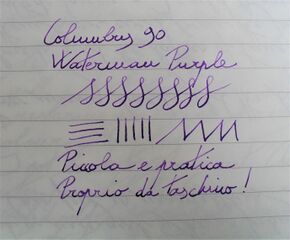 Columbus 90
Waterman Purple
Piccola e pratica
Proprio da taschino!